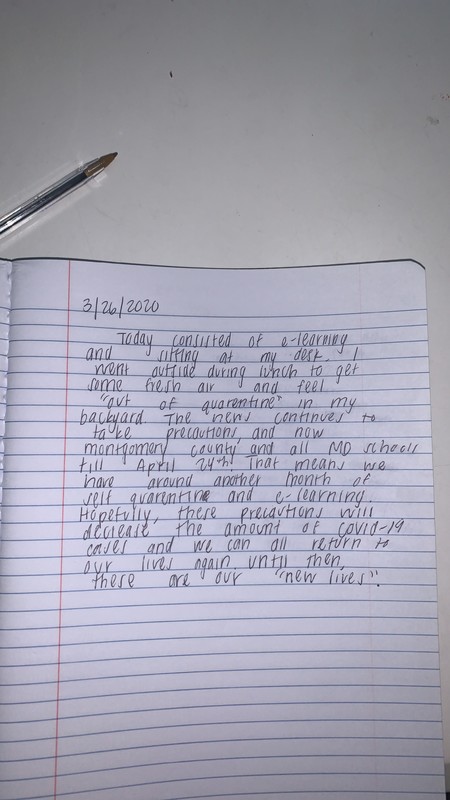 3/26/2020
Today consisted of e-learning
and sitting at my desk. I
went outside during lunch to get
some fresh air and feel
"out of quarentine" in my
backyard. The news continues to
take precautions, and now
montgomery county and all MD schools
till April 24th. That means we
have around another month of
self quarentine and e-learning.
Hopefully, these precautions will
decrease the amount of covid-19
cases and we can all return to
our lives again, until then,
these are our "new lives".